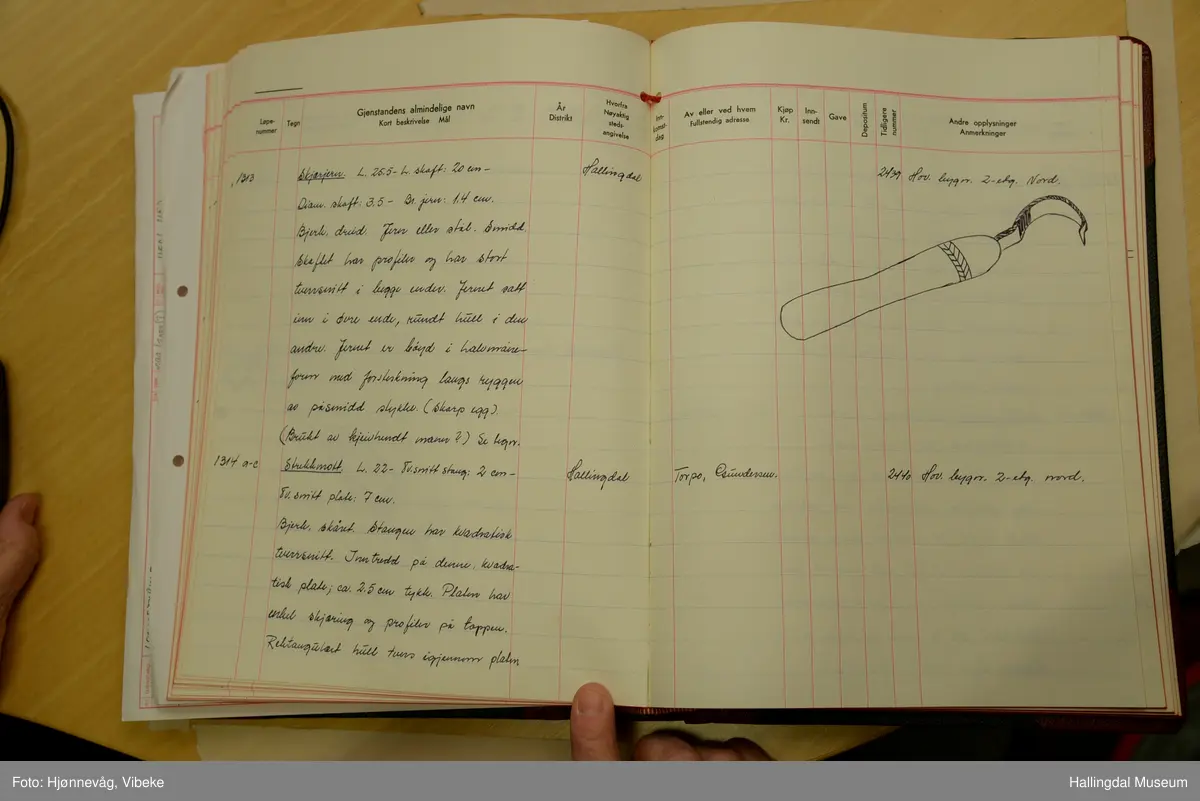 Løpe-
nummer
Tegn
Gjenstandens almindelige navn
Kort beskrivelse Mål
År
Distrikt
Hvorfra
Nøyaktig
steds-
angivelse
Inn-
komst-
dag
Av eller ved hvem
Fullstendig adresse
Kjøp
Kr.
Inn-
sendt
Gave
Depositum
Tidligere
nummer
Andre opplysninger
Anmerkninger
1313 Skjærjern. L. 26.5 - L. skaft: 20 cm - Hallingdal 2439 Hov. bygn. 2-etg. Nord.
Diam. skaft: 3,5 - Br. jern: 1.4 cm.
Bjerk. dreid. Jern eller stål. Smidd.
Skaftet har profiler og har stort
tverrsnitt i begge ender. Jernet satt
inn i øvre ende, rundt hull i den
andre. Jernet er bøyd i halvmåne-
form med forsterkning langs ryggen
av påsmidd stykke. (Skarp egg).
(Brukt av kjeivhendt mann?) Se tegn.
1314 a-c Strikkmått. L. 22 - Tv.snitt stang: 2 cm - Hallingdal Torpo, Gundersen. 2440 Hov. bygn. 2-etg. nord.
Tv.snitt plate: 7 cm.
Bjerk. skåret. Stangen har kvadratisk
tverrsnitt. Inntredd på denne, kvadra-
tisk plate; ca. 2.5 cm tykk. Platen har
enkel skjæring og profiler på toppen.
Rektangulært hull tvers igjennom platen
Foto: Hjønnevåg, Vibeke
Hallingdal Museum